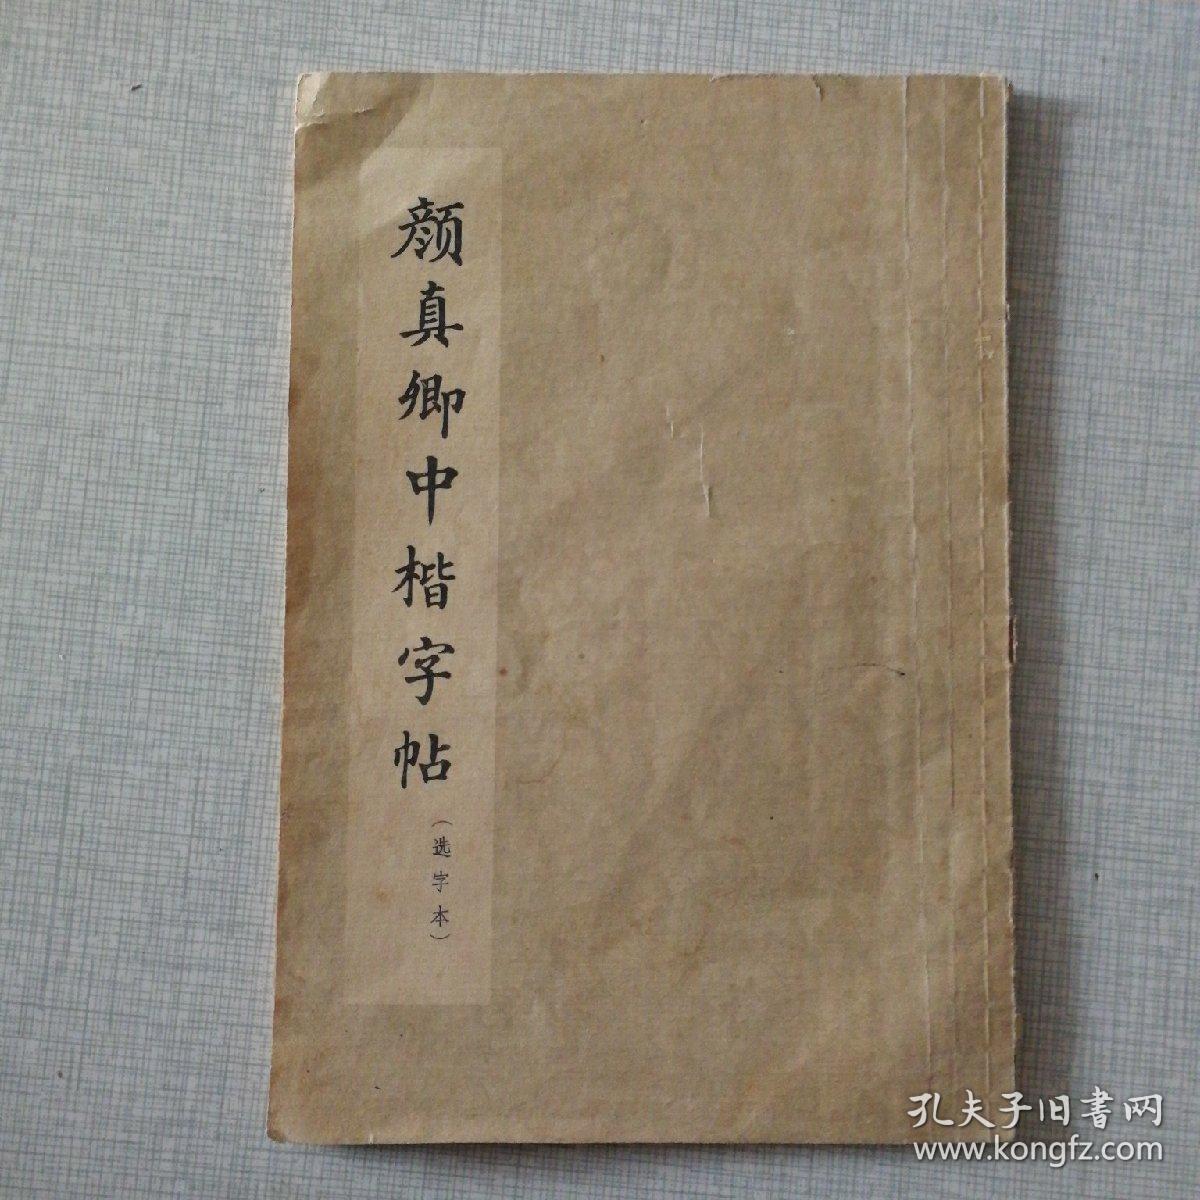 颜真卿中楷字帖
（选字本）
孔夫子旧書网
www.kongfz.com